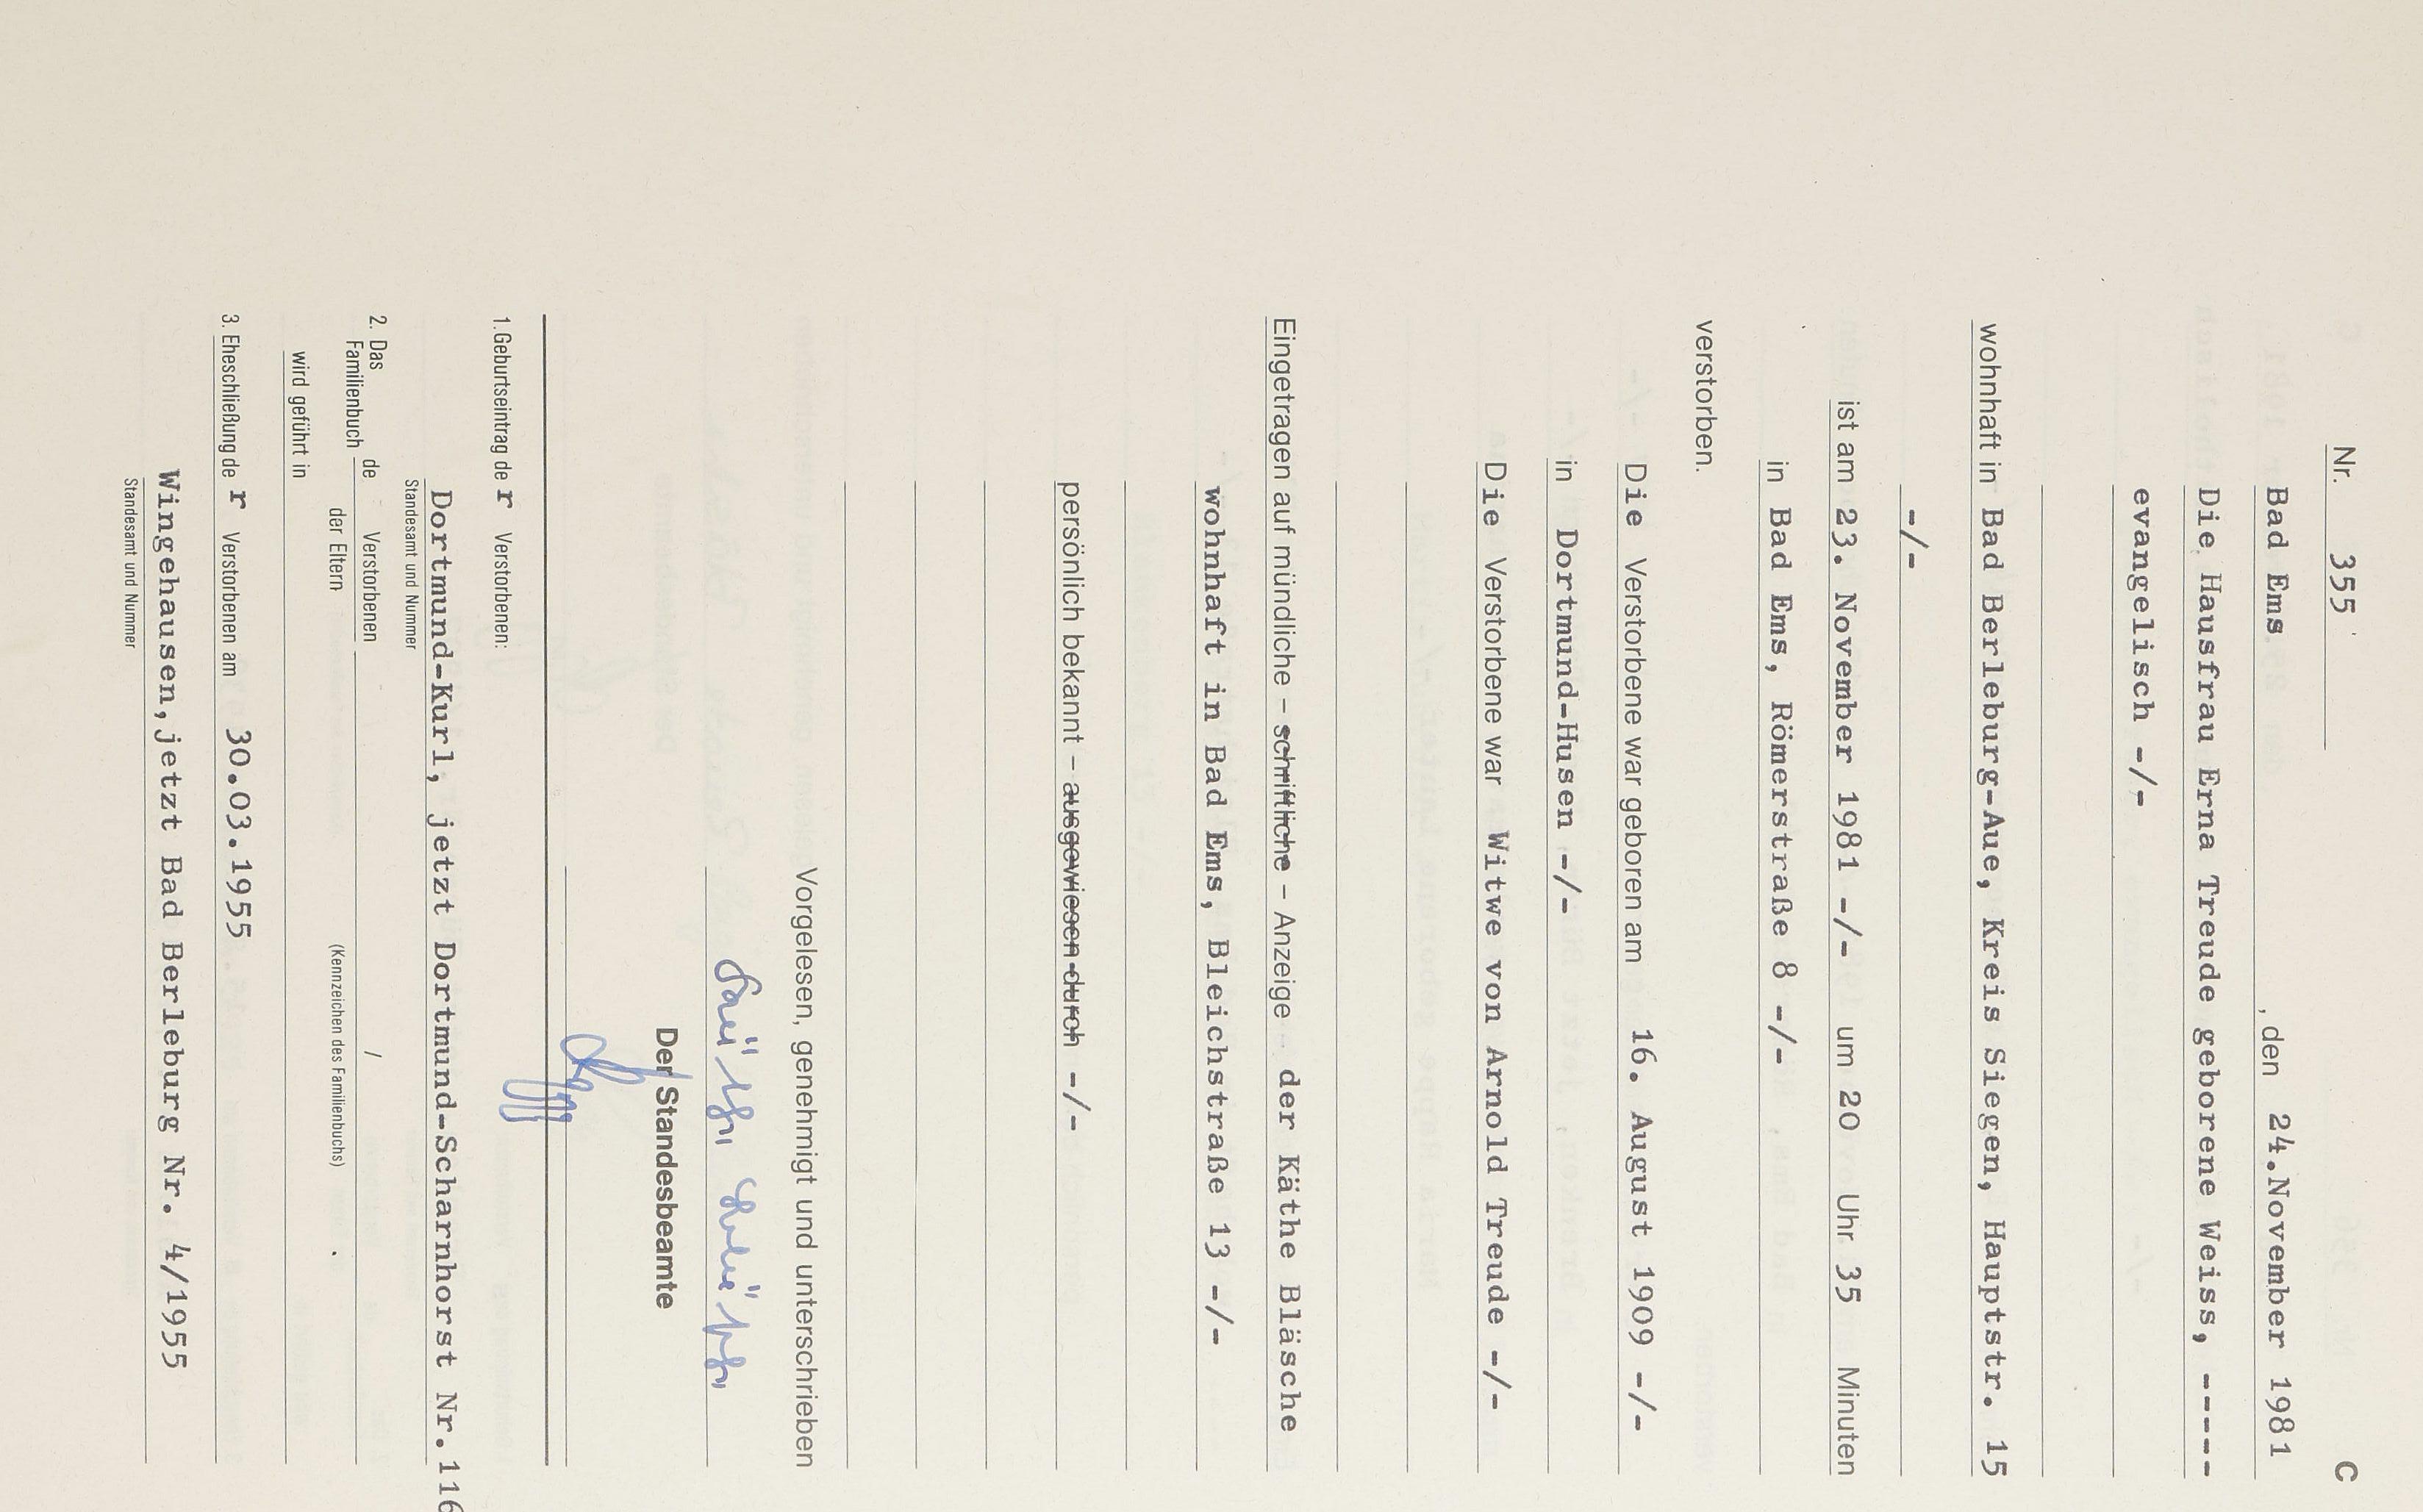 C
Nr. 355
Bad Ems, den 24.November 1981
Die Hausfrau Erna Treude geborene Weiss, -----
evangelisch -/-
wohnhaft in Bad Berleburg-Aue, Kreis Siegen, Hauptstr. 15
-/-
ist am 23. November 1981 -/- um 20 Uhr 35 Minuten
in Bad Ems, Römerstraße 8 -/-
verstorben.
Die Verstorbene war geboren am 16. August 1909 -/-
in Dortmund-Husen -/-
Die Verstorbene war Witwe von Arnold Treude -/-
Eingetragen auf mündliche – schriftliche – Anzeige der Käthe Bläsche
wohnhaft in Bad Ems, Bleichstraße 13 -/-
persönlich bekannt – ausgewiesen durch -/-
Vorgelesen, genehmigt und unterschrieben
Der Standesbeamte
1.Geburtseintrag de r Verstorbenen:
Dortmund-Kurl, jetzt Dortmund-Scharnhorst Nr.116
Standesamt und Nummer
2. Das Familienbuch de Verstorbenen /
der Eltern (Kennzeichen des Familienbuchs)
wird geführt in
3. Eheschließung de r Verstorbenen am 30.03.1955
Wingehausen,jetzt Bad Berleburg Nr. 4/1955
Standesamt und Nummer